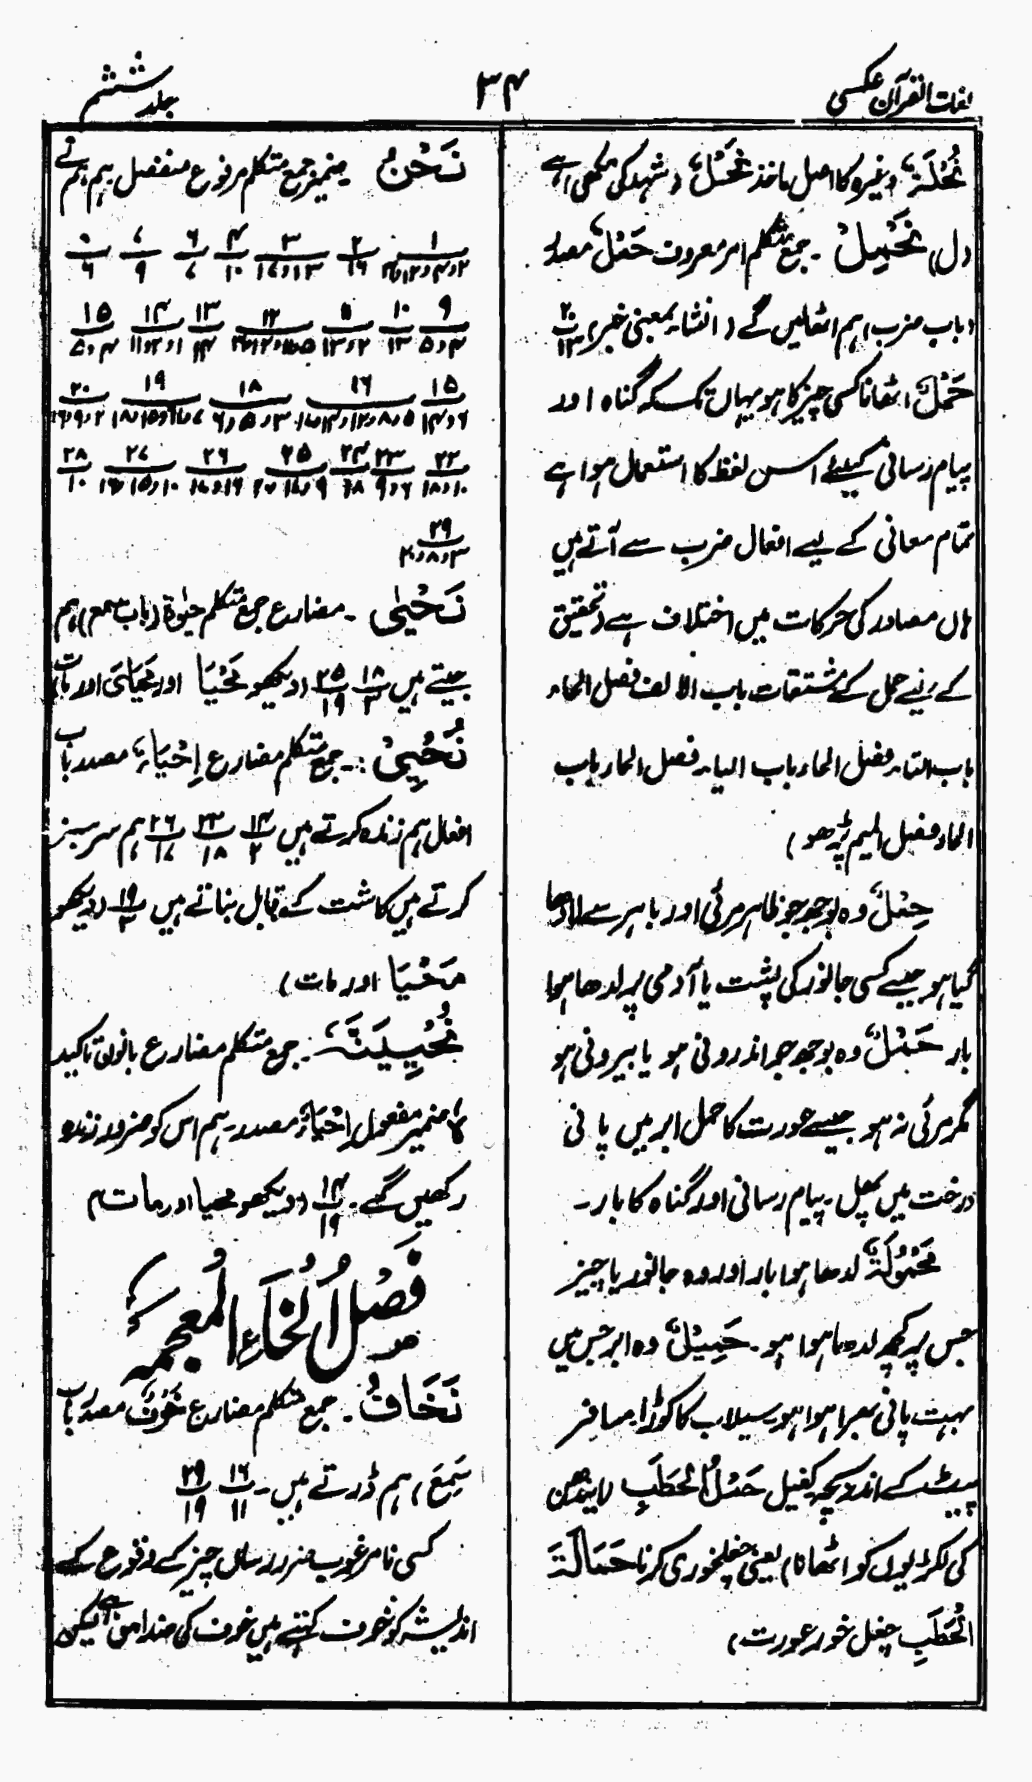 لغات القرآن عکسی
۳۴
جلد ششم
نُحْلَةٌ وغیرہ کا اصل ماخذ نَحْلٌ (شہد کی مکھی) ہے
(ل) نَحْمِلُ ۔ جمع متکلم امر معروف حَمْلٌ مصدر
(باب ضرب) ہم اٹھالیں گے (انشاء بمعنی خبر) ۲۰/۱۳
حَمْلٌ اٹھانا کسی چیز کا ہو یہاں تک کہ گناہ اور
پیام رسانی کیلئے اس لفظ کا استعمال ہوا ہے
تمام معانی کے لیے افعال ضرب سے آتے ہیں
ہاں مصادر کی حرکات میں اختلاف ہے (تحقیق
کے لیے حمل کے مشتقات باب الالف فصل الحاء
باب التاء فصل الحاء باب الیاء فصل الحاء باب
الحاء فصل المیم پڑھو)
حِمْلٌ وہ بوجھ جو ظاہر مرئی اور باہر سے لادھا
گیا ہو جیسے کسی جانور کی پشت یا آدمی پر لدھا ہوا
بار حَمْلٌ وہ بوجھ جو اندرونی ہو یا بیرونی ہو
مگر مرئی نہ ہو جیسے عورت کا حمل ابر میں پانی
درخت میں پھل ۔ پیام رسانی اور گناہ کا بار ۔
حَمُولَةٌ لدھا ہوا بار اور وہ جانور یا چیز
جس پر کچھ لدھا ہوا ہو ۔ حَمِيْلٌ وہ ابر جس میں
بہت پانی بھرا ہوا ہو سیلاب کا کوڑا ۔ مسافر
پیٹ کے اندر بچہ کفیل حَمْلُ الْحَطَبِ (ایندھن
کی لکڑیوں کو اٹھانا) یعنی چغلخوری کرنا حَمَّالَةَ
الْحَطَبِ چغل خور عورت)
نَحْنُ ۔ ضمیر جمع متکلم مرفوع منفصل ہم ہم نے
۱/۲و۴و۱۲و۱۶ ۲/۱۶ ۳/۱۳و۱۷ ۴/۱۰ ۶/۷ ۷/۹
۹/۴و۵ ۱۰/۱۳ ۱۱/۲و۱۳ ۱۲/ ۱۳/۱۴ ۱۴/۱و۲و۱۱ ۱۵/۴و۵
۱۵/۶و۱۴ ۱۶/ ۱۸/۳و۵و۶ ۱۹/ ۲۰/
۲۲/۱۰و۱۸ ۲۳/۶و۹ ۲۴/۱۸ ۲۵/ ۲۶/۱۶و۱۷ ۲۷/۱۰و۱۵و۱۶ ۲۸/۱۰
۲۹/۳و۸و۲۰
نَحْيٰى ۔ مضارع جمع متکلم حیٰوۃ (باب سمع) ہم
جیتے ہیں ۱۸/۳ ۲۵/۱۹ (دیکھو نَحْيَا اور مَحْيَايَ اور مات)
نُحْيِيْ : ۔ جمع متکلم مضارع اِحْيَاءٌ مصدر باب
افعال ہم زندہ کرتے ہیں ۱۴/۲ ۲۲/۱۸ ۲۶/۱۶ ہم سرسبز
کرتے ہیں کاشت کے قابل بناتے ہیں ۱۹/۳ (دیکھو
مَحْيَا اور مات)
نُحْيِيَنَّهٗ ۔ جمع متکلم مضارع بانون تاکید
ہٗ ضمیر مفعول اِحْيَاءٌ مصدر ۔ ہم اس کو ضرور زندہ
رکھیں گے ۔ ۱۴/۱۹ (دیکھو محیا اور مات)
فَصْلُ الْخَاءِ الْمُعْجَمَةِ
نَخَافُ ۔ جمع متکلم مضارع خَوْفٌ مصدر باب
سَمِعَ) ہم ڈرتے ہیں ۔ ۱۶/۱۱ ۲۹/۱۹
کسی نامرغوب ضرر رساں چیز کے وقوع کے
اندیشہ کو خوف کہتے ہیں خوف کی ضد امن ہے لیکن